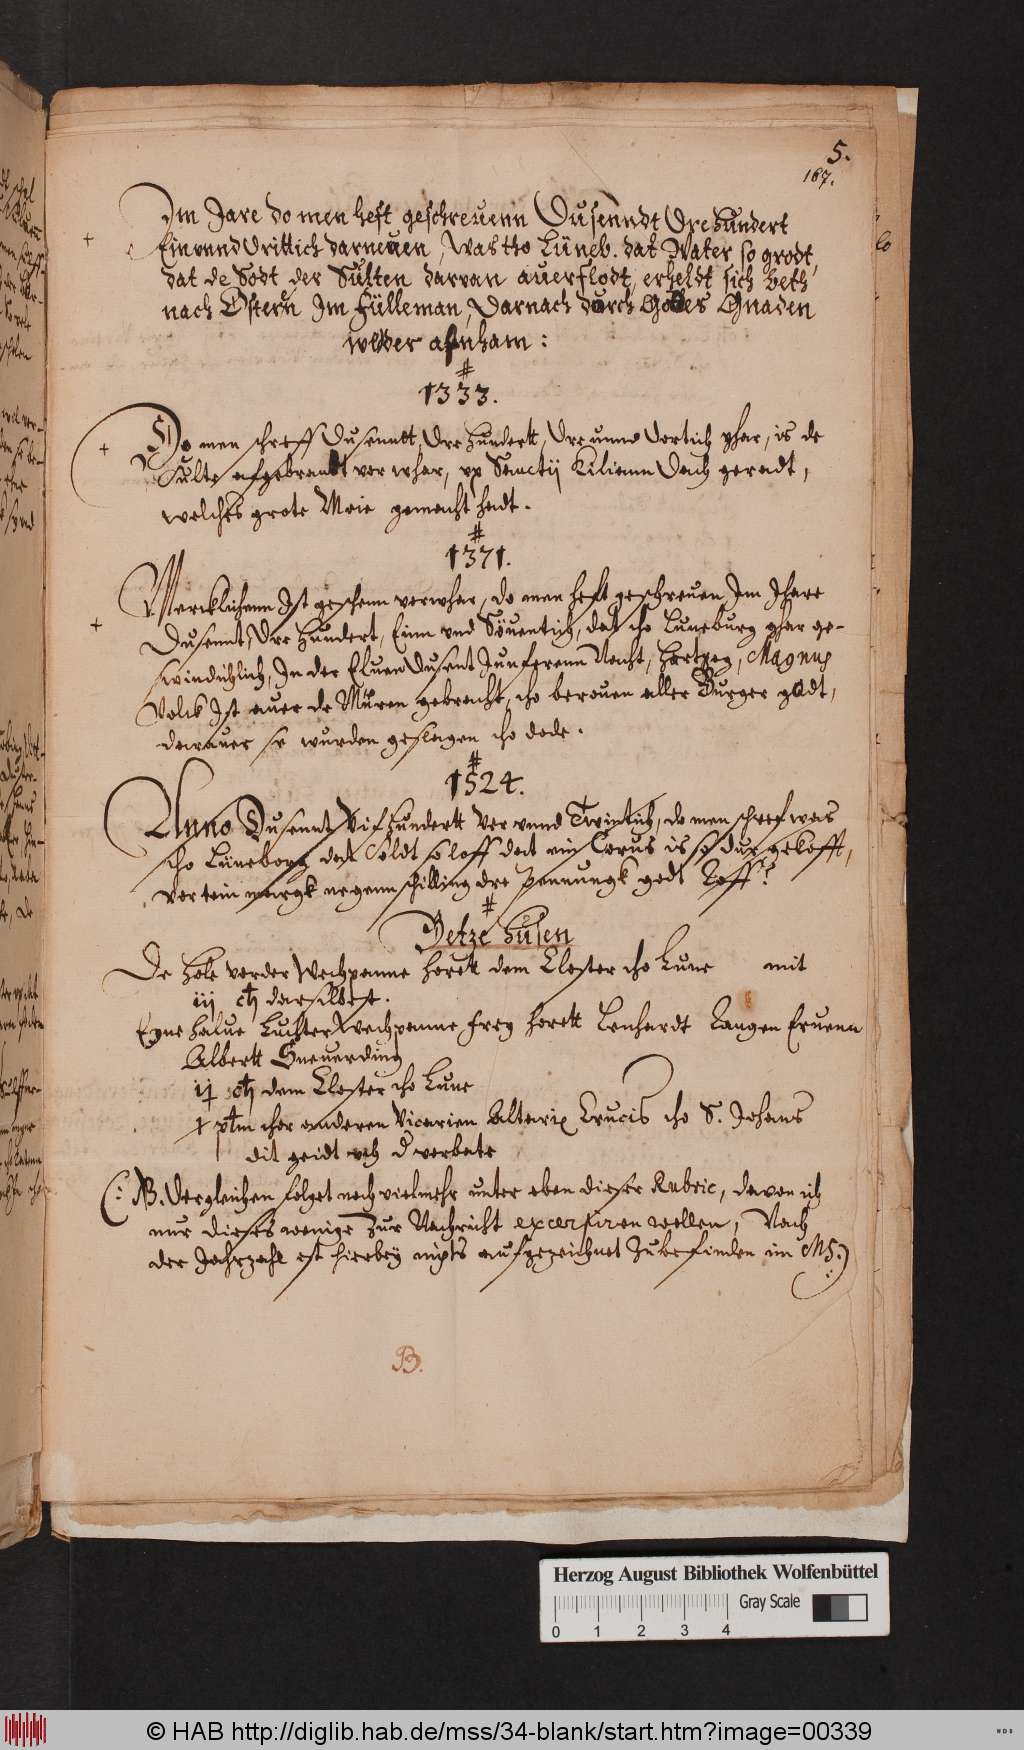 5.
167.
Im Jare do men heft geschreuenn Dusenndt Drehundert
Einunnd drittich darneuen, Was tho Lüneb. dat Water so grodt,
dat de Sodt der Sulten darvan auerflodt, erheldt sich beth
nach Ostern Im fülleman, Darnach durch Gottes Gnaden
weder afnham:
#
1333.
Do men schreff Dusenntt, Dre Hundertt, Dre unnd Dortich yhar, is de
Sulte afgebrandt vorwhar, up Sanctij Kiliann Dach geradt,
welches grote Moie gemacht hadt.
#
1371.
Mercklichenn Ist geschenn vorwhar, do men heft geschreuen Im Ihare
Dusennt, Dre Hundert, Einn und Söuentich, dat tho Luneburg ghar ge-
swindichlich, In der Eluen Dusent Junferenn Nacht, Hartzog, Magnus
Volck Ist auer de Müren gebracht, tho berouen aller Burger godt,
darauer se wurden geslagen tho dode.
#
1524.
Anno Dusennt Vif Hundertt Ver unnd Twintich, do men schreef was
tho Lüneborg dat Soldt so loff dat ein Corus is so dur gekofft,
vor tein margk negenn schilling dre pennungk godt Loff?
#
Detze Husen
De Hole vorder Wechpanne horett dem Closter tho Lune mit
iij darsilbest.
Eyne halue Luchter Wechpanne frey horett Lenhardt Langen Eruenn
Albertt Sneuerding
ij dem Closter tho Lune
1 ptm thor anderen Vicarien Altaris Crucis tho S. Johans
dit geidt uth d vorbate
(: NB. Dergleichen folget noch vielmehr unter eben dieser Rubric, davon ich
nur dieses wenige zur Nachricht excerpiren wollen, Nach
der Jahrzahl est hierbey nichts aufgezeichnet zubefinden im MS:)
B.
Herzog August Bibliothek Wolfenbüttel
Gray Scale
0 1 2 3 4
© HAB http://diglib.hab.de/mss/34-blank/start.htm?image=00339
WDB